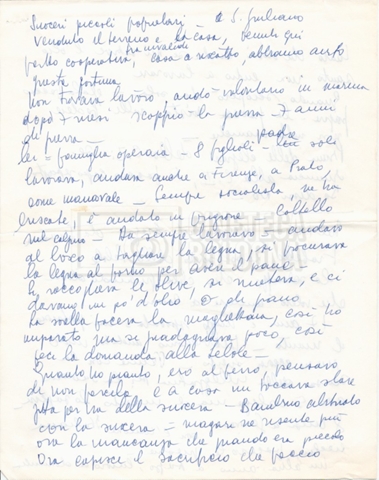 Suoceri piccoli proprietari - a S. Giuliano
venduto il terreno e la casa, venuti qui
fra invalidi
cooperativa, casa a riscatto, abbiamo avuto
questa fortuna
Non trovava lavoro, andò volontario in marina
dopo 7 mesi scoppiò la guerra - 7 anni
di guerra -
Lei = famiglia operaia - 8 figlioli - padre solo
lavorava, andava anche a Firenze, a Prato,
come manovale - Sempre socialista, ne ha
è andato in prigione - Coltello
Ha sempre lavorato - andavo
al bosco a tagliare la legna, si procurava
la legna al forno per avere il pane -
le olive, si e ci
davano un po' d'olio o di pane
La sorella faceva la magliettaia, così ho
imparato ma si guadagnava poco, così
feci la domanda alla
Quanto ho pianto, ero al ferro, pensavo
di non farcela - e a casa mi toccava stare
zitta per via della suocera - Bambino abituato
con la suocera - magari ne risente più
ora la mancanza che quando era piccolo
Ora capisce il sacrificio che faccio